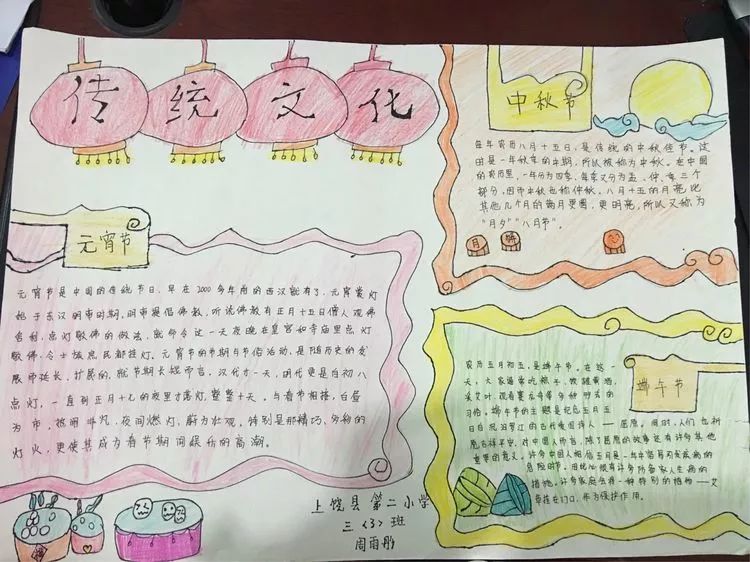 传统文化
元宵节
元宵节是中国的传统节日，早在2000多年前的西汉就有了，元宵赏灯
始于东汉明帝时期，明帝提倡佛教，听说佛教有正月十五日僧人观佛
舍利，点灯敬佛的做法，就命令这一天夜晚在皇宫和寺庙里点灯
敬佛，令士族庶民都挂灯。元宵节的节期与节俗活动，是随历史的发
展而延长，扩展的。就节期长短而言，汉代才一天，明代更是自初八
点灯，一直到正月十七的夜里才落灯，整整十天。与春节相接，白昼
为市，热闹非凡，夜间燃灯，蔚为壮观，特别是那精巧，多彩的
灯火，更使其成为春节期间娱乐的高潮。
中秋节
每年农历八月十五日，是传统的中秋佳节。这
时是一年秋季的中期，所以被称为中秋。在中国
的农历里，一年分为四季，每季又分为孟、仲、季三个
部分，因而中秋也称仲秋。八月十五的月亮比
其他几个月的满月更圆，更明亮，所以又称为
“月夕”“八月节”。
月 饼
端午节
农历五月初五，是端午节。在这一
天，大家通常吃粽子，饮雄黄酒，
采艾叶
的
习俗。端午节的主题是纪念五月五
日自沉汨罗江的古代爱国诗人——屈原。同时，人们也祈
愿吉祥平安。对中国人而言，除了屈原的故事还有许多其他
重要的意义。许多中国人相信五月是一年中容易引发疾病的
危险时节，因此必须有许多防备家人生病的
措施。许多家庭会将一种特别的植物——艾
草挂在门口，作为保护作用。
上饶县第二小学
三〈3〉班
周雨彤